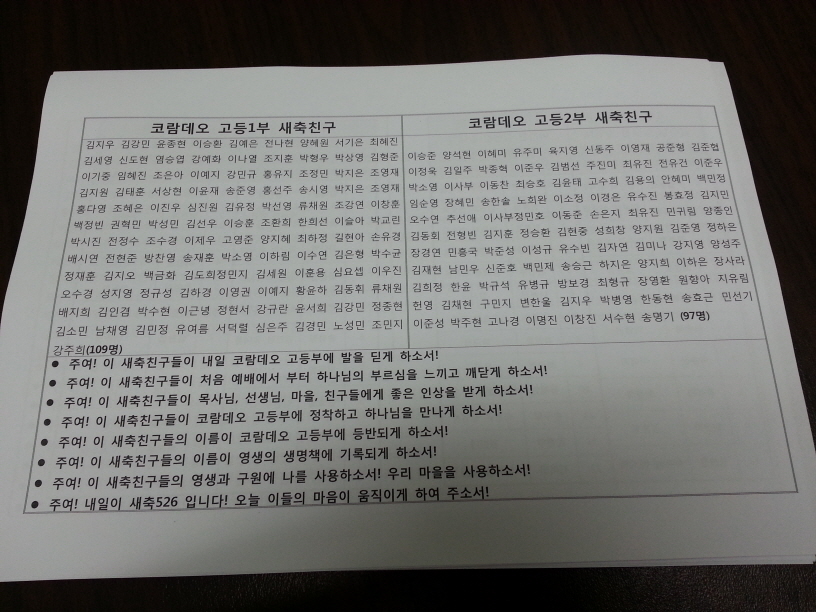 코람데오 고등1부 새축친구
김지우 김강민 윤종현 이승환 김예은 전나현 양혜원 서기은 최혜진
김세영 신도현 염승엽 강예화 이나열 조지훈 박형우 박상영 김형준
이기중 임혜진 조은아 이예지 강민규 홍유지 조정민 박지은 조영재
김지원 김태훈 서상현 이윤재 송준영 홍선주 송시영 박지은 조영재
홍다영 조혜은 이진우 심진원 김유정 박선영 류채원 조강연 이창훈
백정빈 권혁민 박성민 김선우 이승훈 조환희 한희선 이슬아 박교린
박시진 전정수 조수경 이제우 고명준 양지혜 최하정 길현아 손유경
배시연 전현준 방찬영 송재훈 박소영 이하림 이수연 김은형 박수균
정재훈 김지오 백금화 김도희정민지 김세원 이훈용 심요셉 이우진
오수경 성지영 정규성 김하경 이영권 이예지 황윤하 김동휘 류채원
배지희 김인겸 박수현 이근녕 정현서 강규란 윤서희 김강민 정종현
김소민 남채영 김민정 유여름 서덕렬 심은주 김경민 노성민 조민지
강주희(109명)
코람데오 고등2부 새축친구
이승준 양석현 이혜미 유주미 육지영 신동주 이영재 공준형 김준협
이정욱 김일주 박종혁 이준우 김범선 주진미 최유진 전유건 이준우
박소영 이사부 이동찬 최승호 김윤태 고수희 김용의 안혜미 백민정
임순영 장혜민 송한솔 노희완 이소정 이경은 유수진 봉효정 김지민
오수연 주선애 이사부정민호 이동준 손은지 최유진 민귀림 양종인
김동회 전형빈 김지훈 정승환 김현중 성희창 양지원 김준영 정하은
장경연 민흥국 박준성 이성규 유수빈 김자연 김미나 강지영 양성주
김재현 남민우 신준호 백민제 송승근 하지은 양지희 이하은 장사라
김희정 한윤 박규석 유병규 방보경 최형규 장영환 원향아 지유림
헌영 김채현 구민지 변한울 김지우 박병영 한동현 송효근 민선기
이준성 박주현 고나경 이명진 이창진 서수현 송명기 (97명)
● 주여! 이 새축친구들이 내일 코람데오 고등부에 발을 딛게 하소서!
● 주여! 이 새축친구들이 처음 예배에서 부터 하나님의 부르심을 느끼고 깨닫게 하소서!
● 주여! 이 새축친구들이 목사님, 선생님, 마을, 친구들에게 좋은 인상을 받게 하소서!
● 주여! 이 새축친구들이 코람데오 고등부에 정착하고 하나님을 만나게 하소서!
● 주여! 이 새축친구들의 이름이 코람데오 고등부에 등반되게 하소서!
● 주여! 이 새축친구들의 이름이 영생의 생명책에 기록되게 하소서!
● 주여! 이 새축친구들의 영생과 구원에 나를 사용하소서! 우리 마을을 사용하소서!
● 주여! 내일이 새축526 입니다! 오늘 이들의 마음이 움직이게 하여 주소서!